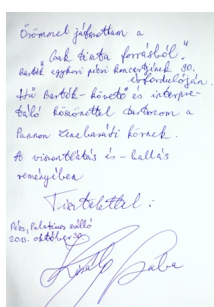 Örömmel játszottam a
"Csak tiszta forrásból"
Bartók egykori pécsi koncertjének 90.
évfordulóján.
Hű Bartók-követő és interpre-
táló köszönettel tartozom a
Pannon Zenebaráti körnek.
A viszontlátás és -hallás
reményében
Tisztelettel:
Pécs, Palatinus szálló
2013. október 30.
Király Csaba